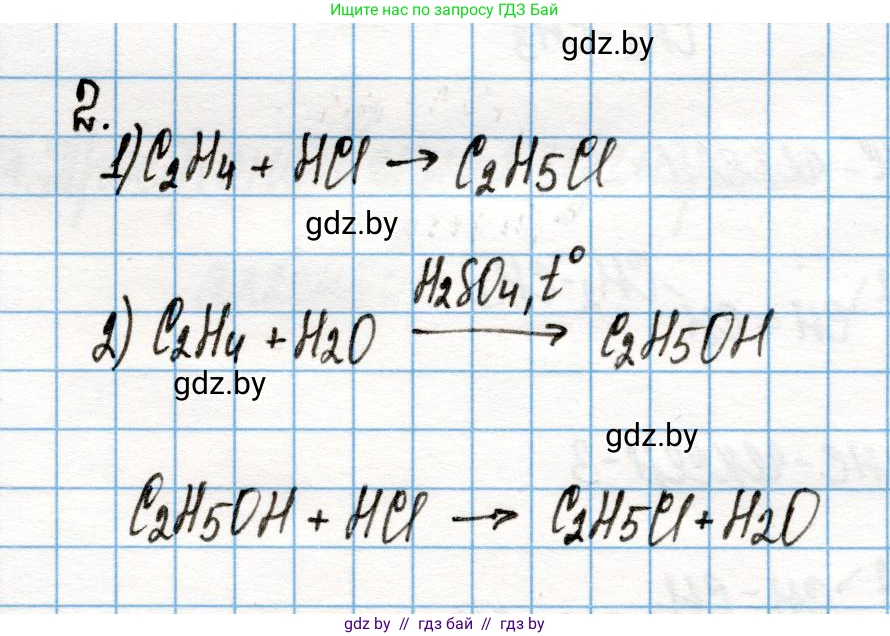 Ищите нас по запросу ГДЗ Бай
gdz.by
2.
1) C₂H₄ + HCl → C₂H₅Cl
gdz.by
H₂SO₄, t°
2) C₂H₄ + H₂O → C₂H₅OH
gdz.by
gdz.by
C₂H₅OH + HCl → C₂H₅Cl + H₂O
gdz.by // гдз бай // гдз by